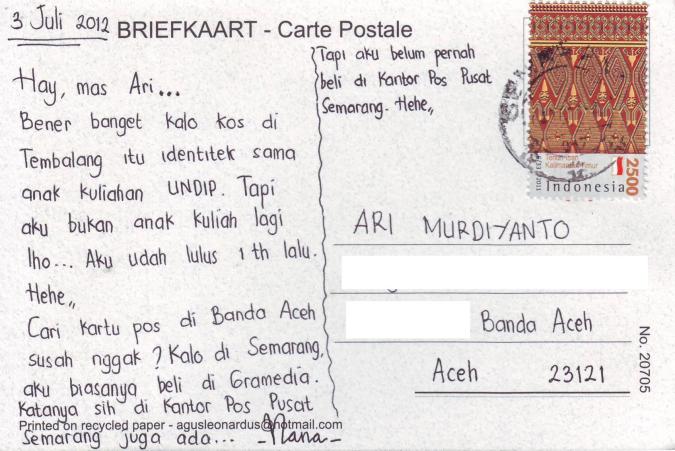 3 Juli 2012
BRIEFKAART - Carte Postale
Hay, mas Ari...
Bener banget kalo kos di
Tembalang itu identitek sama
anak kuliahan UNDIP. Tapi
aku bukan anak kuliah lagi
lho... Aku udah lulus 1 th lalu.
Hehe,,
Cari kartu pos di Banda Aceh
susah nggak ? Kalo di Semarang,
aku biasanya beli di Gramedia.
Katanya sih di Kantor Pos Pusat
Semarang juga ada... -Nana-
Printed on recycled paper - agusleonardus@hotmail.com
Tapi aku belum pernah
beli di Kantor Pos Pusat
Semarang. Hehe,,
Kalimantan Timur
2500
Indonesia
ARI MURDIYANTO
Banda Aceh
Aceh 23121
No. 20705